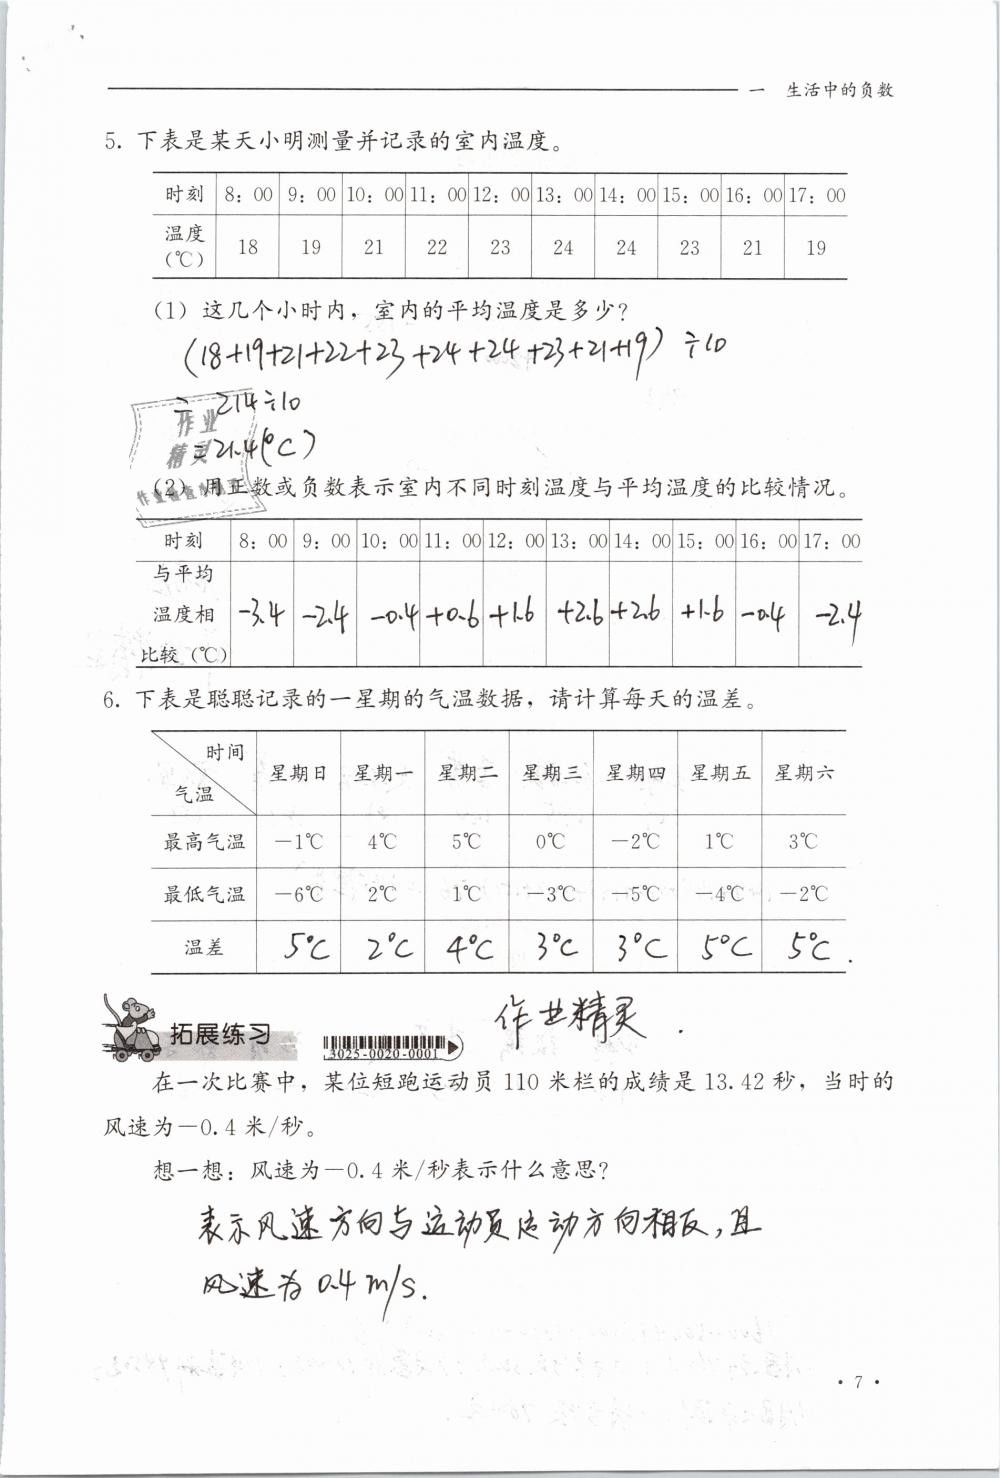 一 生活中的负数
5. 下表是某天小明测量并记录的室内温度。
时刻 8：00 9：00 10：00 11：00 12：00 13：00 14：00 15：00 16：00 17：00
温度（℃） 18 19 21 22 23 24 24 23 21 19
（1）这几个小时内，室内的平均温度是多少？
(18+19+21+22+23+24+24+23+21+19)÷10
= 214÷10
= 21.4(℃)
作业
精灵
（2）用正数或负数表示室内不同时刻温度与平均温度的比较情况。
时刻 8：00 9：00 10：00 11：00 12：00 13：00 14：00 15：00 16：00 17：00
与平均温度相比较（℃） -3.4 -2.4 -0.4 +0.6 +1.6 +2.6 +2.6 +1.6 -0.4 -2.4
6. 下表是聪聪记录的一星期的气温数据，请计算每天的温差。
时间 气温 星期日 星期一 星期二 星期三 星期四 星期五 星期六
最高气温 －1℃ 4℃ 5℃ 0℃ －2℃ 1℃ 3℃
最低气温 －6℃ 2℃ 1℃ －3℃ －5℃ －4℃ －2℃
温差 5℃ 2℃ 4℃ 3℃ 3℃ 5℃ 5℃.
作业精灵.
拓展练习
3025-0020-0001
在一次比赛中，某位短跑运动员 110 米栏的成绩是 13.42 秒，当时的
风速为－0.4 米/秒。
想一想：风速为－0.4 米/秒表示什么意思？
表示风速方向与运动员运动方向相反,且
风速为 0.4 m/s.
· 7 ·